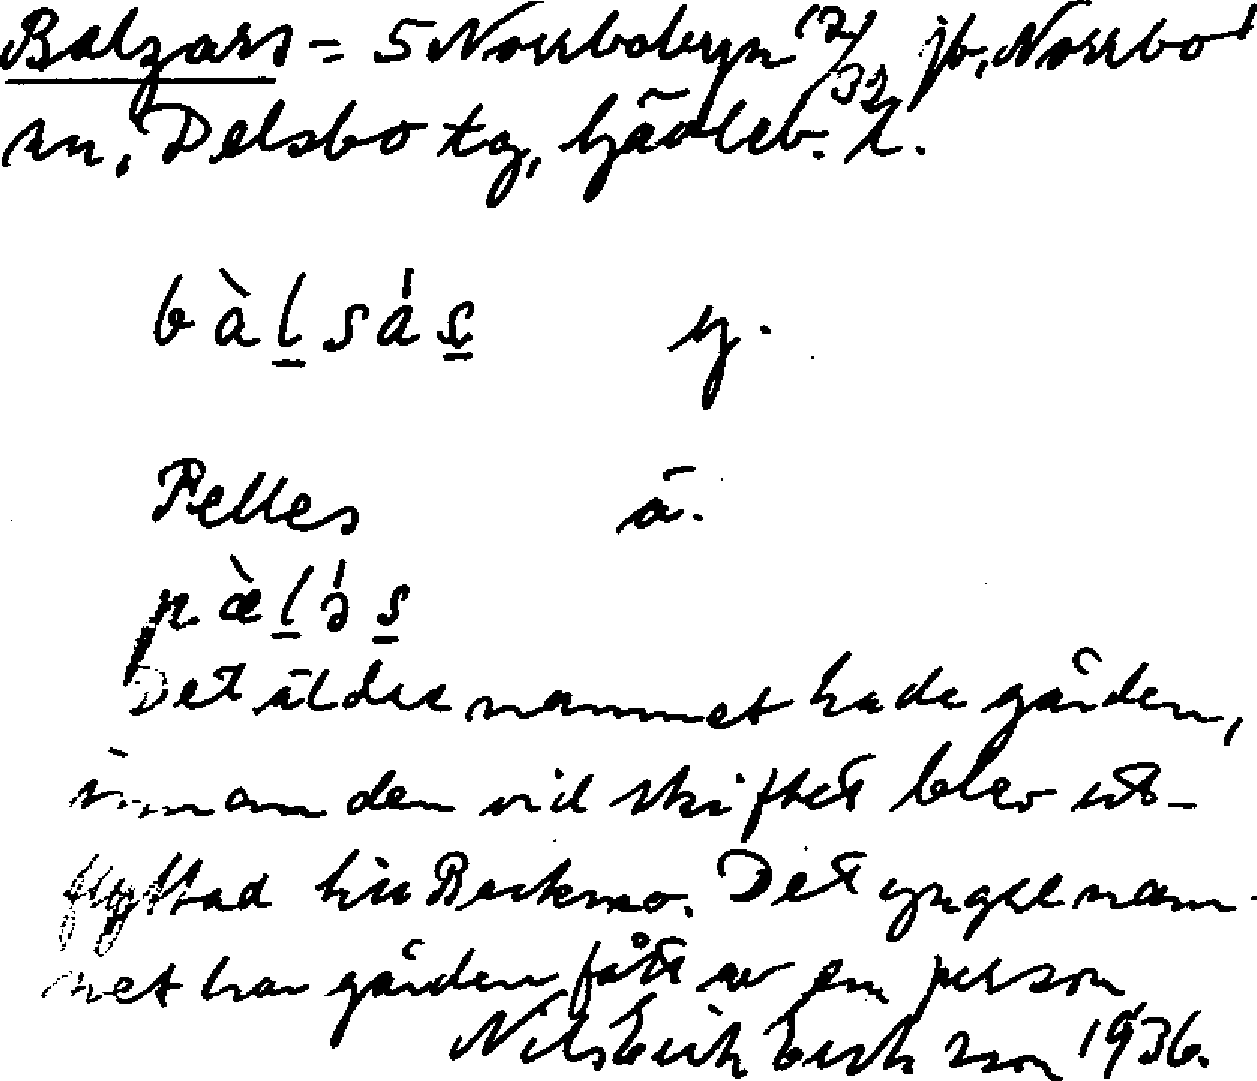 Balzars = 5 Norrbobyn 12/32 jb, Norrbo
sn, Delsbo tg, Gävleb. l.
bàl̲sás̲ y.
Pelles ä.
pæ̀l̲ə́s̲
Det äldre namnet hade gården,
innan den vid skiftet blev ut-
flyttad till Backmo. Det yngre nam-
net har gården fått av en person
Nils Erik Eriksson 1936.